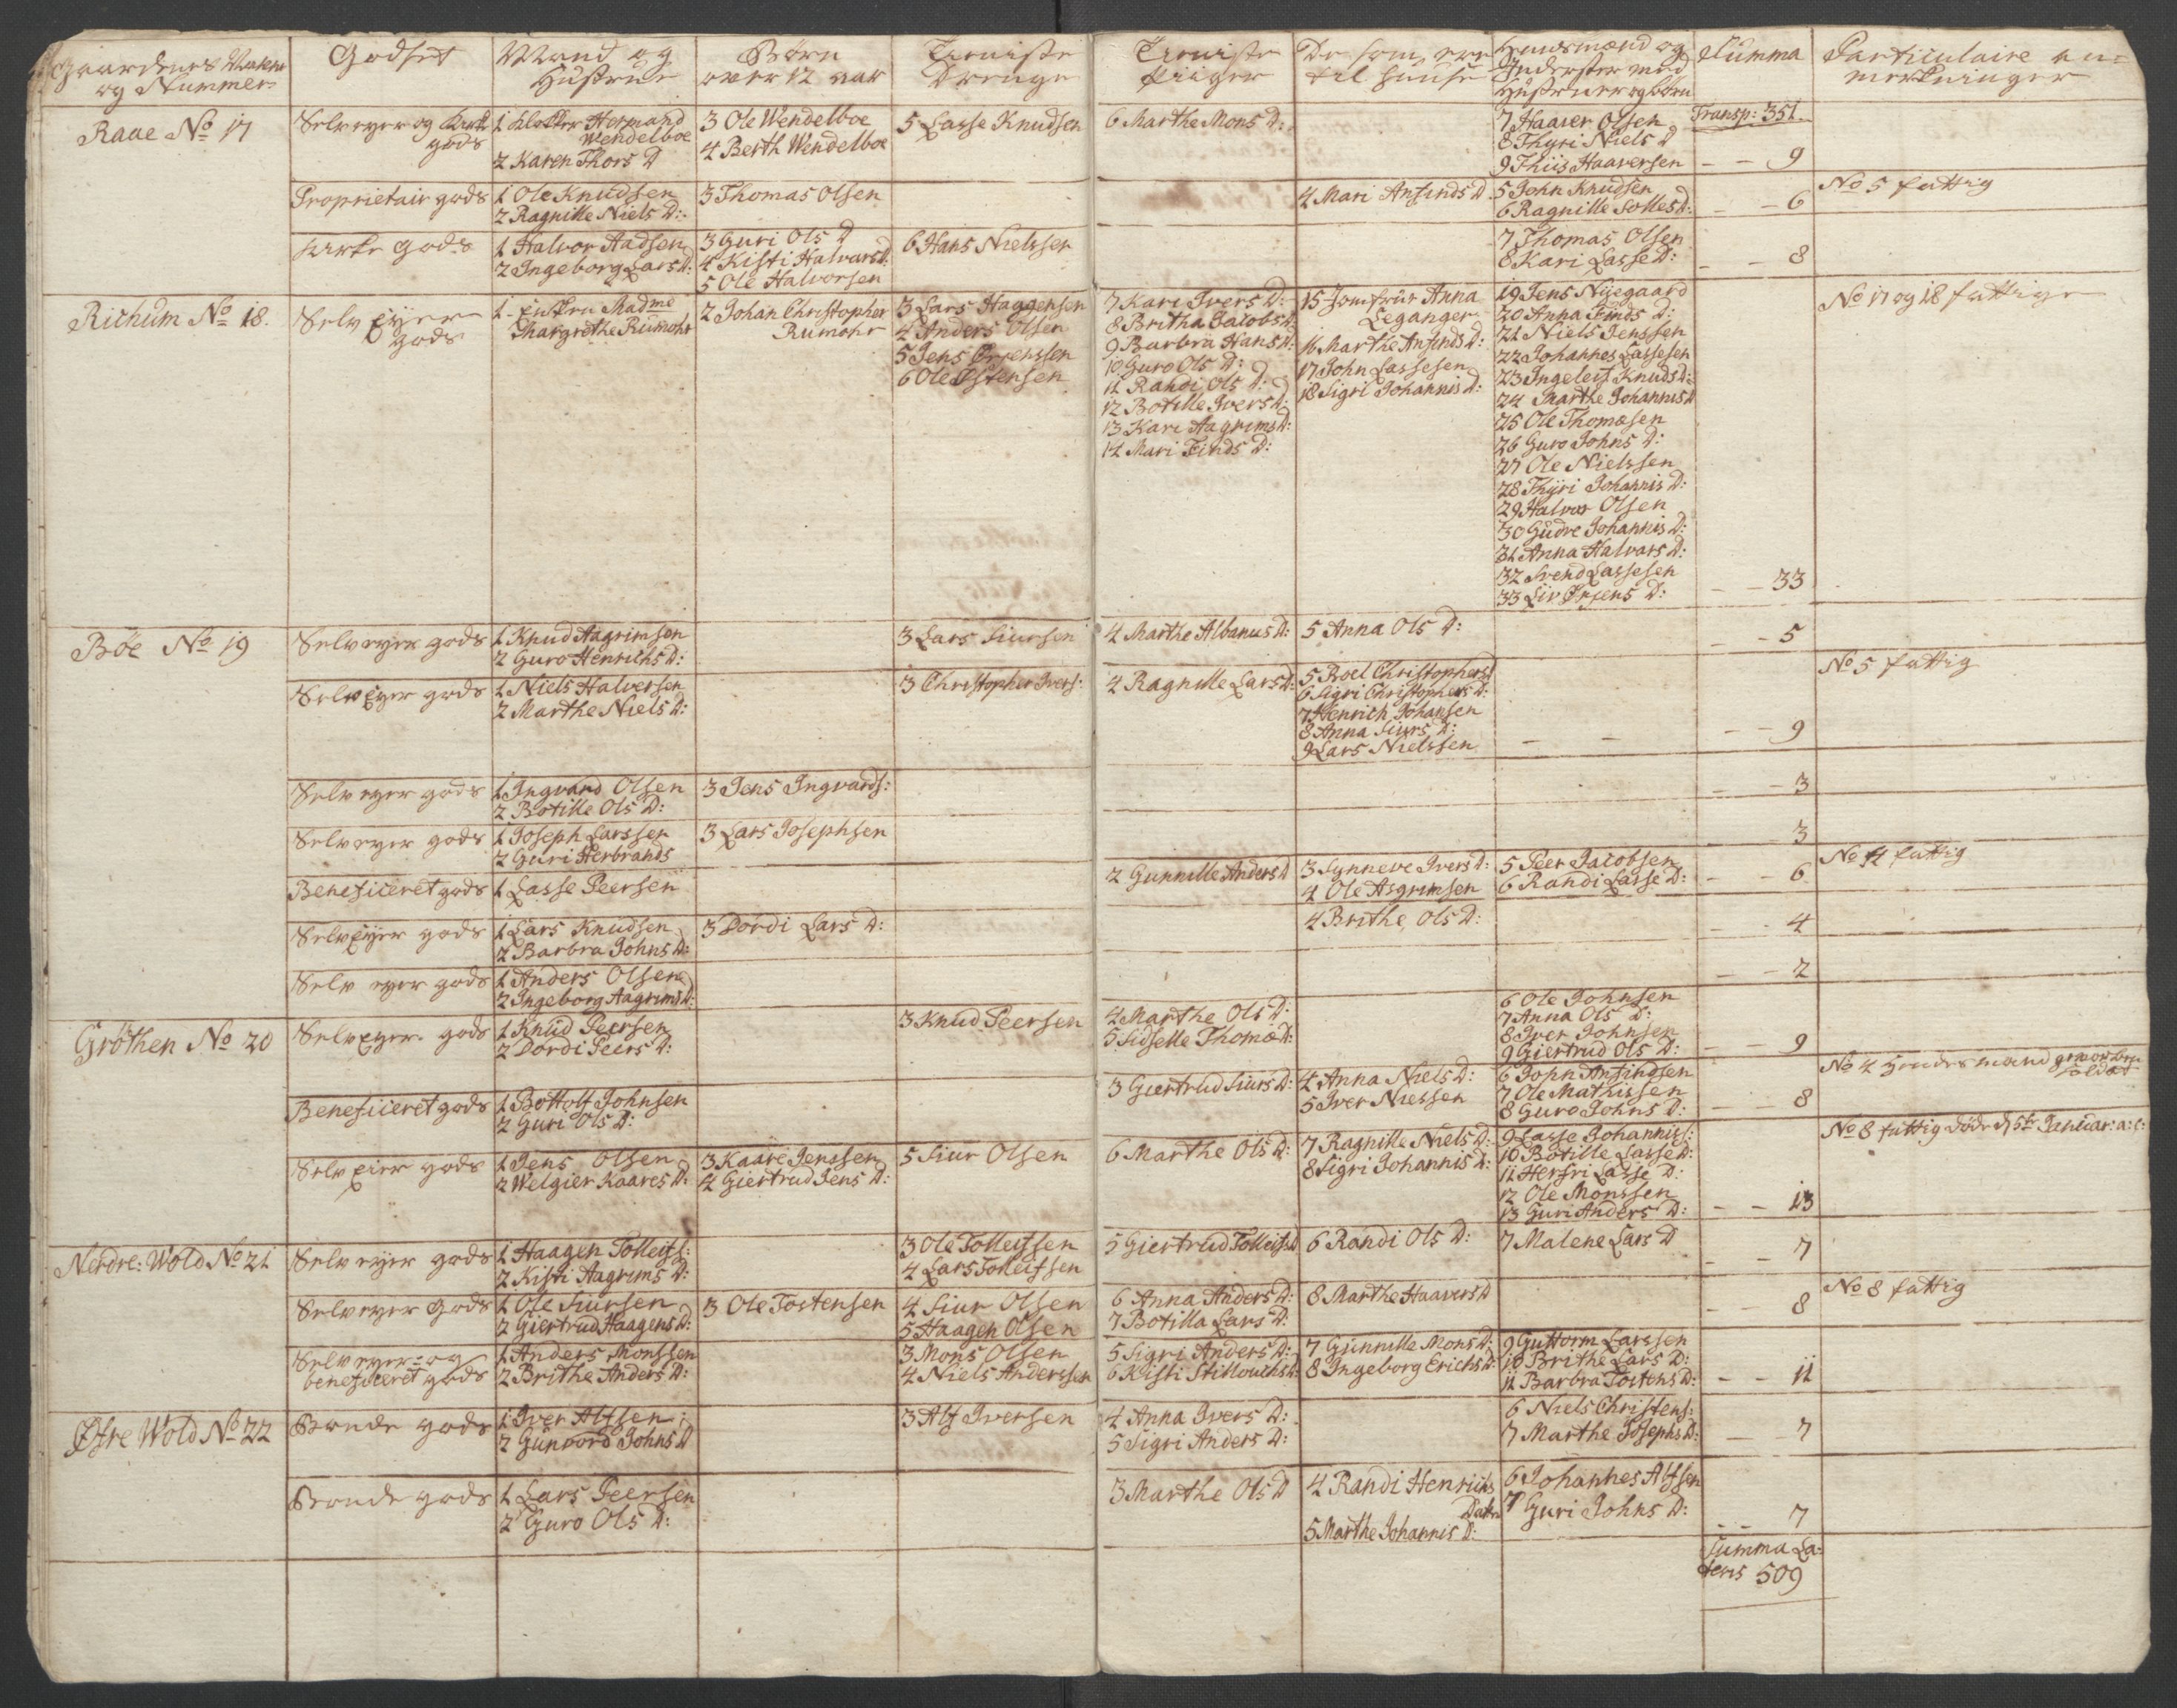 Gaardenes Nafne og Nummer
Godset
Mand og Hustrue
Børn over 12 aar
Tieniste Drenge
Tieniste Piiger
De som ere til huuse
Huusmænd og Inderster med Hustruer og børn
Summa
Particulaire anmerkninger
Raae No 17
Selveyer og Kirke gods
1 Klokker Hermand Wendelboe
2 Karen Thors D
3 Ole Wendelboe
4 Berth Wendelboe
5 Lasse Knudsen
6 Marthe Mons D:
7 Haaver Olsen
8 Thyri Niels D
9 Thiis Haaversen
Transp: 351.
9
Proprietair gods
1 Ole Knudsen
2 Ragnille Niels D:
3 Thomas Olsen
4 Mari Anfinds D
5 John Knudsen
6 Ragnille Solles D:
6
No 5 fattig
Kirke Gods
1 Halvor Aadsen
2 Ingeborg Lars D:
3 Guri Ols D
4 Kisti Halvars D:
5 Ole Halvorsen
6 Hans Nielssen
7 Thomas Olsen
8 Kari Lasse D:
8
Richum No 18.
Selv Eyer gods
1 Enken Madme Margrethe Rumohr
2 Johan Christopher Rumohr
3 Lars Haggensen
4 Anders Olsen
5 Jens Ørjenssen
6 Ole Østensen
7 Kari Ivers D:
8 Britha Jacobs D:
9 Barbra Hans D:
10 Guro Ols D:
11 Randi Ols D:
12 Botille Ivers D:
13 Kari Aagrims D:
14 Mari Finds D:
15 Jomfrue Anna Leganger
16 Marthe Anfinds D:
17 John Lassesen
18 Sigri Johannis D:
19 Jens Nyegaard
20 Anna Finds D:
21 Niels Jenssen
22 Johannes Lassesen
23 Ingeleif Knuds D:
24 Marthe Johannis D
25 Ole Thomæsen
26 Guro Johns D:
27 Ole Nielssen
28 Thyri Johannis D:
29 Halvor Olsen
30 Gudre Johannis D:
31 Anna Halvars D:
32 Svend Lassesen
33 Liv Ørjens D:
33
No 17 og 18 fattige
Bøe No 19
Selveyer gods
1 Knud Aagrimsen
2 Guro Henrichs D:
3 Lars Siursen
4 Marthe Albanus D:
5 Anna Ols D:
5
Selv Eyer gods
1 Niels Halversen
2 Marthe Niels D:
3 Christopher Ivers:
4 Ragnille Lars D:
5 Roel Christophers D
6 Sigri Christophers D:
7 Henrich Johansen
8 Anna Siurs D:
9 Lars Nielssen
9
No 5 fattig
Selveyer gods
1 Ingvard Olsen
2 Botille Ols D:
3 Jens Ingvards:
3
Selveyer gods
1 Joseph Larssen
2 Guri Herbrands
3 Lars Josephsen
3
Beneficeret gods
1 Lasse Peersen
2 Gunnille Anders D
3 Synneve Ivers D:
4 Ole Asgrimsen
5 Peer Jacobsen
6 Randi Lasse D:
6
No 4 fattig
Selv Eyer gods
1 Lars Knudsen
2 Barbra Johns D:
3 Dordi Lars D:
4 Brithe Ols D:
4
Selv eyer gods
1 Anders Olsen
2 Ingeborg Aagrims D:
2
Grøthen No 20
Selv Eyer gods
1 Knud Peersen
2 Dordi Peers D:
3 Knud Peersen
4 Marthe Ols D:
5 Sidselle Thomæ D:
6 Ole Johnsen
7 Anna Ols D:
8 Iver Johnsen
9 Giertrud Ols D:
9
Beneficeret gods
1 Bottolf Johnsen
2 Guri Ols D:
3 Giertrud Siurs D:
4 Anna Niels D:
5 Iver Niessen
6 John Anfindsen
7 Ole Mathissen
8 Guro Johns D:
8
No 4 hendes mand gevorben soldat
Selv Eier gods
1 Jens Olsen
2 Welgier Kaares D:
3 Kaare Jenssen
4 Giertrud Jens D:
5 Siur Olsen
6 Marthe Ols D:
7 Ragnille Niels D:
8 Sigri Johannis D:
9 Lasse Johannis:
10 Botille Lasse D:
11 Hersri Lasse D:
12 Ole Monssen
13 Guri Anders D:
13
No 8 fattig døde d 5te Januar: a: c:
Nerdre: Wold No 21
Selv eyer gods
1 Haagen Tolleifs:
2 Kisti Aagrims D:
3 Ole Tolleifsen
4 Lars Tolleifsen
5 Giertrud Tolleifs D
6 Randi Ols D:
7 Malene Lars D
7
Selveyer Gods
1 Ole Siursen
2 Giertrud Haagens D:
3 Ole Tostensen
4 Siur Olsen
5 Haagen Olsen
6 Anna Anders D:
7 Botilla Lars D:
8 Marthe Haavers D
8
No 8 fattig
Selveyer- og beneficeret gods
1 Anders Monssen
2 Brithe Anders D:
3 Mons Olsen
4 Niels Anderssen
5 Sigri Anders D:
6 Kisti Stillouchs D:
7 Gunnille Mons D:
8 Ingeborg Erichs D:
9 Guttorm Larssen
10 Brithe Lars D:
11 Barbra Tostens D:
11
Øfre Wold No 22
Bonde gods
1 Iver Alfsen
2 Gunvord Johns D
3 Alf Iversen
4 Anna Ivers D:
5 Sigri Anders D:
6 Niels Christens:
7 Marthe Josephs D:
7
Bonde gods
1 Lars Peersen
2 Guro Ols D:
3 Marthe Ols D
4 Randi Henrichs Dater
5 Marthe Johannis D:
6 Johannes Alfsen
7 Guri Johns D:
7
Summa Lateris 509